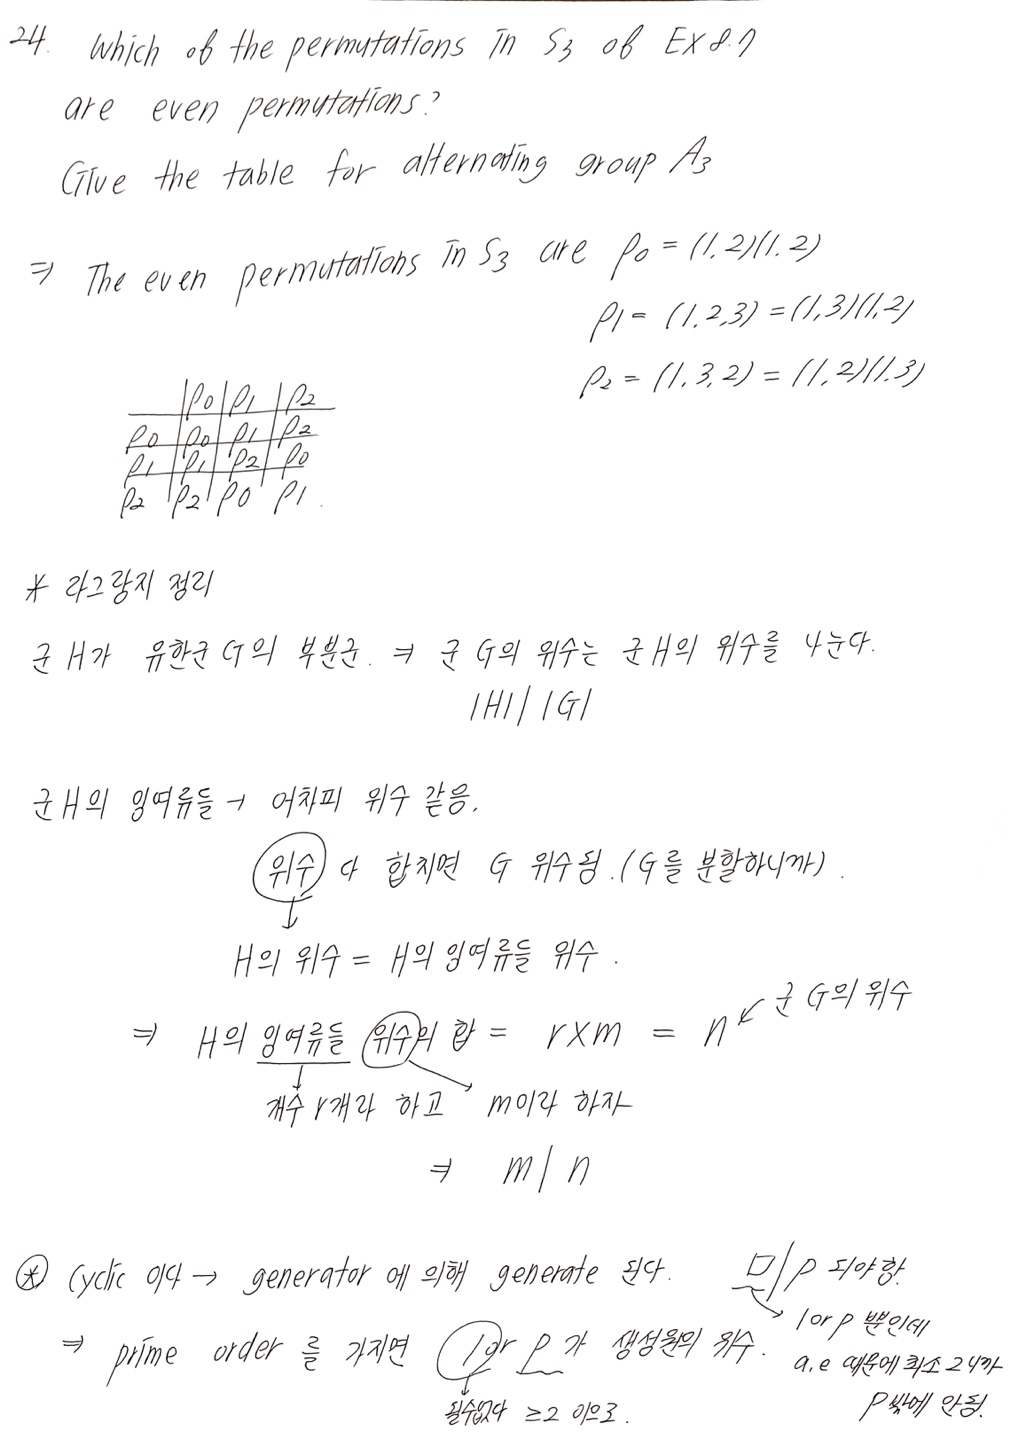 24. Which of the permutations in S3 of EX 8.7
are even permutations?
Give the table for alternating group A3
⇒ The even permutations in S3 are ρ0 = (1.2)(1.2)
ρ1 = (1.2,3) = (1,3)(1,2)
ρ2 = (1.3.2) = (1.2)(1.3)
ρ0 ρ1 ρ2
ρ0 ρ0 ρ1 ρ2
ρ1 ρ1 ρ2 ρ0
ρ2 ρ2 ρ0 ρ1
* 라그랑지 정리
군 H가 유한군 G의 부분군. ⇒ 군 G의 위수는 군 H의 위수를 나눈다.
|H| | |G|
군 H의 잉여류들 → 어차피 위수 같음.
위수 다 합치면 G 위수됨. (G를 분할하니까).
↓
H의 위수 = H의 잉여류들 위수.
⇒ H의 잉여류들 위수의 합 = r×m = n ↙ 군 G의 위수
개수 r개라 하고 m이라 하자
⇒ m | n
* Cyclic 이다 → generator 에 의해 generate 된다. ㅁ | p 되야함.
⇒ prime order 를 가지면 1 or p 가 생성원의 위수.
1 or p 뿐인데
a.e 때문에 최소 2니까
p밖에 안됨.
될수없다 ≥2 이므로.